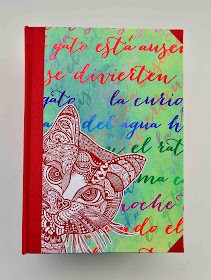 gato está ausen
se divierten
gato la curio
del agua h
en el rat
ma ca
noche
ndo el